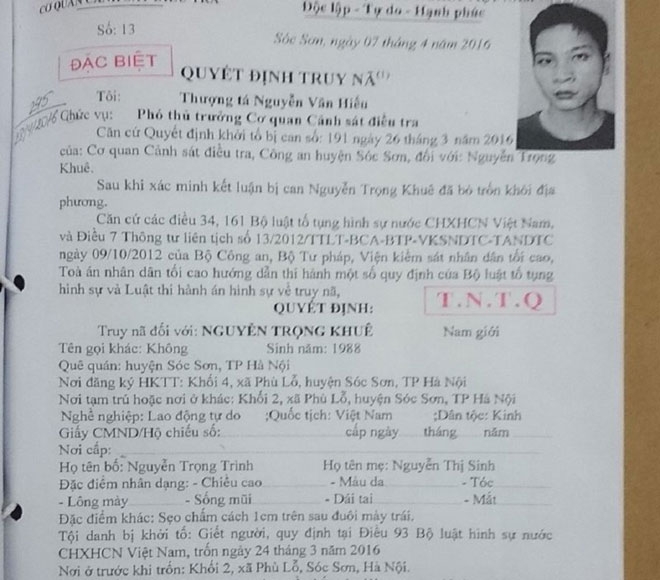 CƠ QUAN
Độc lập - Tự do - Hạnh phúc
Số: 13
Sóc Sơn, ngày 07 tháng 4 năm 2016
ĐẶC BIỆT
QUYẾT ĐỊNH TRUY NÃ(1)
295
Tôi: Thượng tá Nguyễn Văn Hiếu
Chức vụ: Phó thủ trưởng Cơ quan Cảnh sát điều tra
Căn cứ Quyết định khởi tố bị can số: 191 ngày 26 tháng 3 năm 2016
của: Cơ quan Cảnh sát điều tra, Công an huyện Sóc Sơn, đối với: Nguyễn Trọng
Khuê.
Sau khi xác minh kết luận bị can Nguyễn Trọng Khuê đã bỏ trốn khỏi địa
phương.
Căn cứ các điều 34, 161 Bộ luật tố tụng hình sự nước CHXHCN Việt Nam,
và Điều 7 Thông tư liên tịch số 13/2012/TTLT-BCA-BTP-VKSNDTC-TANDTC
ngày 09/10/2012 của Bộ Công an, Bộ Tư pháp, Viện kiểm sát nhân dân tối cao,
Toà án nhân dân tối cao hướng dẫn thi hành một số quy định của Bộ luật tố tụng
hình sự và Luật thi hành án hình sự về truy nã,
QUYẾT ĐỊNH:
T.N.T.Q
Truy nã đối với: NGUYỄN TRỌNG KHUÊ Nam giới
Tên gọi khác: Không Sinh năm: 1988
Quê quán: huyện Sóc Sơn, TP Hà Nội
Nơi đăng ký HKTT: Khối 4, xã Phù Lỗ, huyện Sóc Sơn, TP Hà Nội
Nơi tạm trú hoặc nơi ở khác: Khối 2, xã Phù Lỗ, huyện Sóc Sơn, TP Hà Nội
Nghề nghiệp: Lao động tự do ;Quốc tịch: Việt Nam ;Dân tộc: Kinh
Giấy CMND/Hộ chiếu số: cấp ngày tháng năm
Nơi cấp:
Họ tên bố: Nguyễn Trọng Trình Họ tên mẹ: Nguyễn Thị Sinh
Đặc điểm nhân dạng: - Chiều cao - Màu da - Tóc
- Lông mày - Sống mũi - Dái tai - Mắt
Đặc điểm khác: Sẹo chấm cách 1cm trên sau đuôi mày trái.
Tội danh bị khởi tố: Giết người, quy định tại Điều 93 Bộ luật hình sự nước
CHXHCN Việt Nam, trốn ngày 24 tháng 3 năm 2016
Nơi ở trước khi trốn: Khối 2, xã Phù Lỗ, Sóc Sơn, Hà Nội.